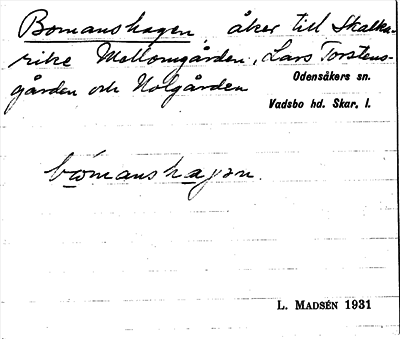 Bomanshagen, åker till Skalka-
rike Mellomgården, Lars Torstens-
gården och Nolgården
Odensåkers sn.
Vadsbo hd. Skar. l.
bωmanshagən.
L. MADSÉN 1931